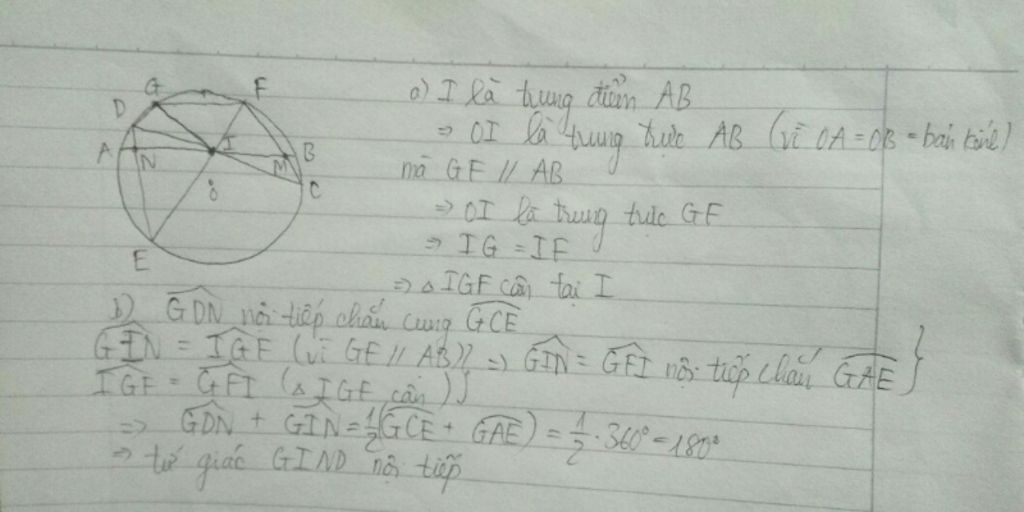 G F
D
A N I M B
O C
E
a) I là trung điểm AB
⇒ OI là trung trực AB (vì OA = OB = bán kính)
mà GF // AB
⇒ OI là trung trực GF
⇒ IG = IF
⇒ △IGF cân tại I
b) GDN nội tiếp chắn cung GCE
GIN = IGF (vì GF // AB) ⇒ GIN = GFI nội tiếp chắn GAE
IGF = GFI (△IGF cân)
⇒ GDN + GIN = 1/2(GCE + GAE) = 1/2 . 360° = 180°
⇒ tứ giác GIND nội tiếp